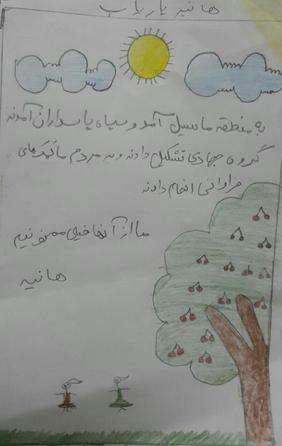 هانیه یاریاب
به منطقه ما سیل آمد و سپاه پاسداران آمدند
گروه جهادی تشکیل دادند و به مردم ما کمک‌های
فراوانی انجام دادند
ما از آنها خیلی ممنونیم
هانیه